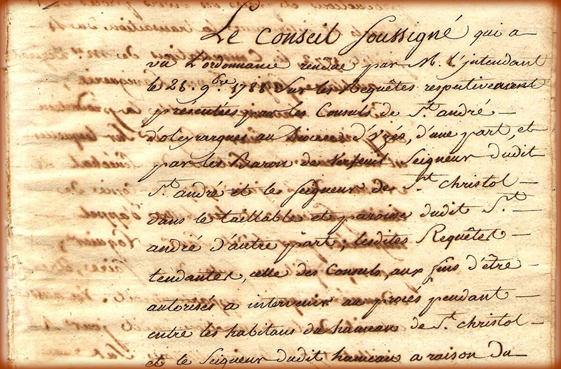 Le Conseil soussigné qui a
vu l'ordonnance rendue par M. l'intendant
le 28. 9bre 1788 sur les Requêtes respectivement
présentées par les Consuls de St. andré
d'olerargues au Diocese d'Uzès, d'une part, et
par les Baron de Seigneur dudit
St. andré et le seigneur de St. christol
dans le taillable et paroisse dudit St.
andré d'autre part; lesdites Requêtes
tendantes, celle des Consuls, aux fins d'être
autorisés a intervenir au procès pendant
entre les habitans du hameau de St. christol
et le Seigneur dudit hameau a raison du